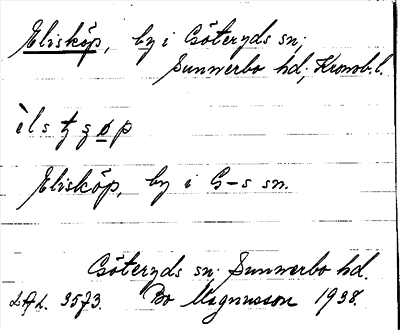 Elisköp, by i Göteryds sn;
Sunnerbo hd; Kronob. l.
Elisköp, by i G-s sn.
Göteryds sn. Sunnerbo hd.
LAL. 3573. Bo Magnusson 1938.